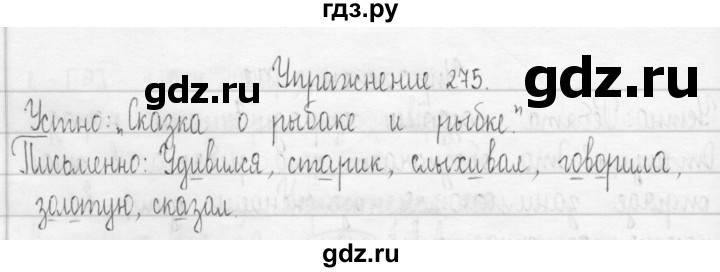 гдз.ру
Упражнение 275.
gdz.ru
Устно: „Сказка о рыбаке и рыбке."
Письменно: Удивился, старик, слыхивал, говорила,
золотую, сказал.
gdz.ru